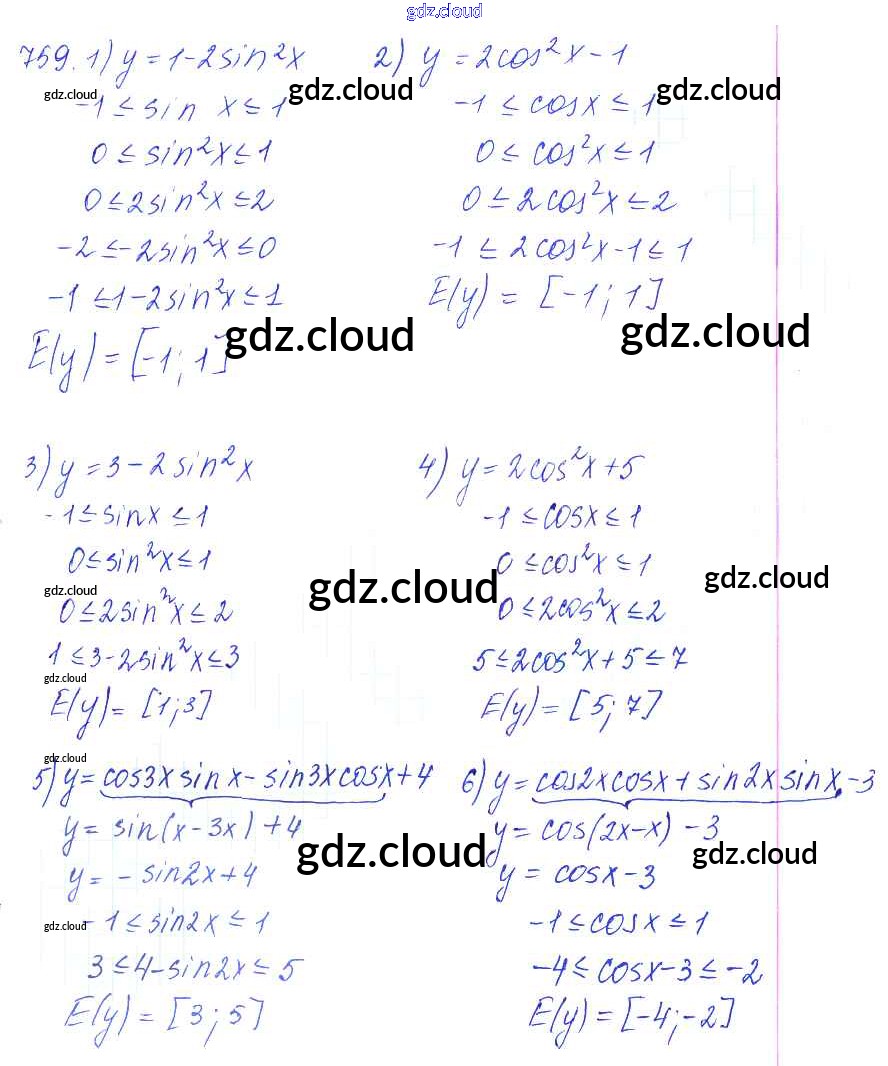 gdz.cloud
759. 1) y = 1-2sin²x
gdz.cloud
-1 ≤ sin x ≤ 1
gdz.cloud
0 ≤ sin²x ≤ 1
0 ≤ 2sin²x ≤ 2
-2 ≤ -2sin²x ≤ 0
-1 ≤ 1-2sin²x ≤ 1
E(y) = [-1; 1]
gdz.cloud
2) y = 2cos²x - 1
-1 ≤ cosx ≤ 1
gdz.cloud
0 ≤ cos²x ≤ 1
0 ≤ 2cos²x ≤ 2
-1 ≤ 2cos²x-1 ≤ 1
E(y) = [-1; 1]
gdz.cloud
3) y = 3-2sin²x
-1 ≤ sinx ≤ 1
0 ≤ sin²x ≤ 1
gdz.cloud
gdz.cloud
0 ≤ 2sin²x ≤ 2
1 ≤ 3-2sin²x ≤ 3
gdz.cloud
E(y) = [1; 3]
4) y = 2cos²x+5
-1 ≤ cosx ≤ 1
0 ≤ cos²x ≤ 1
gdz.cloud
0 ≤ 2cos²x ≤ 2
5 ≤ 2cos²x+5 ≤ 7
E(y) = [5; 7]
gdz.cloud
5) y = cos3x sinx - sin3x cosx + 4
y = sin(x-3x) + 4
gdz.cloud
y = - sin2x + 4
gdz.cloud
-1 ≤ sin2x ≤ 1
3 ≤ 4-sin2x ≤ 5
E(y) = [3; 5]
6) y = cos2x cosx + sin2x sinx - 3
y = cos(2x-x) - 3
gdz.cloud
y = cosx - 3
-1 ≤ cosx ≤ 1
-4 ≤ cosx-3 ≤ -2
E(y) = [-4; -2]